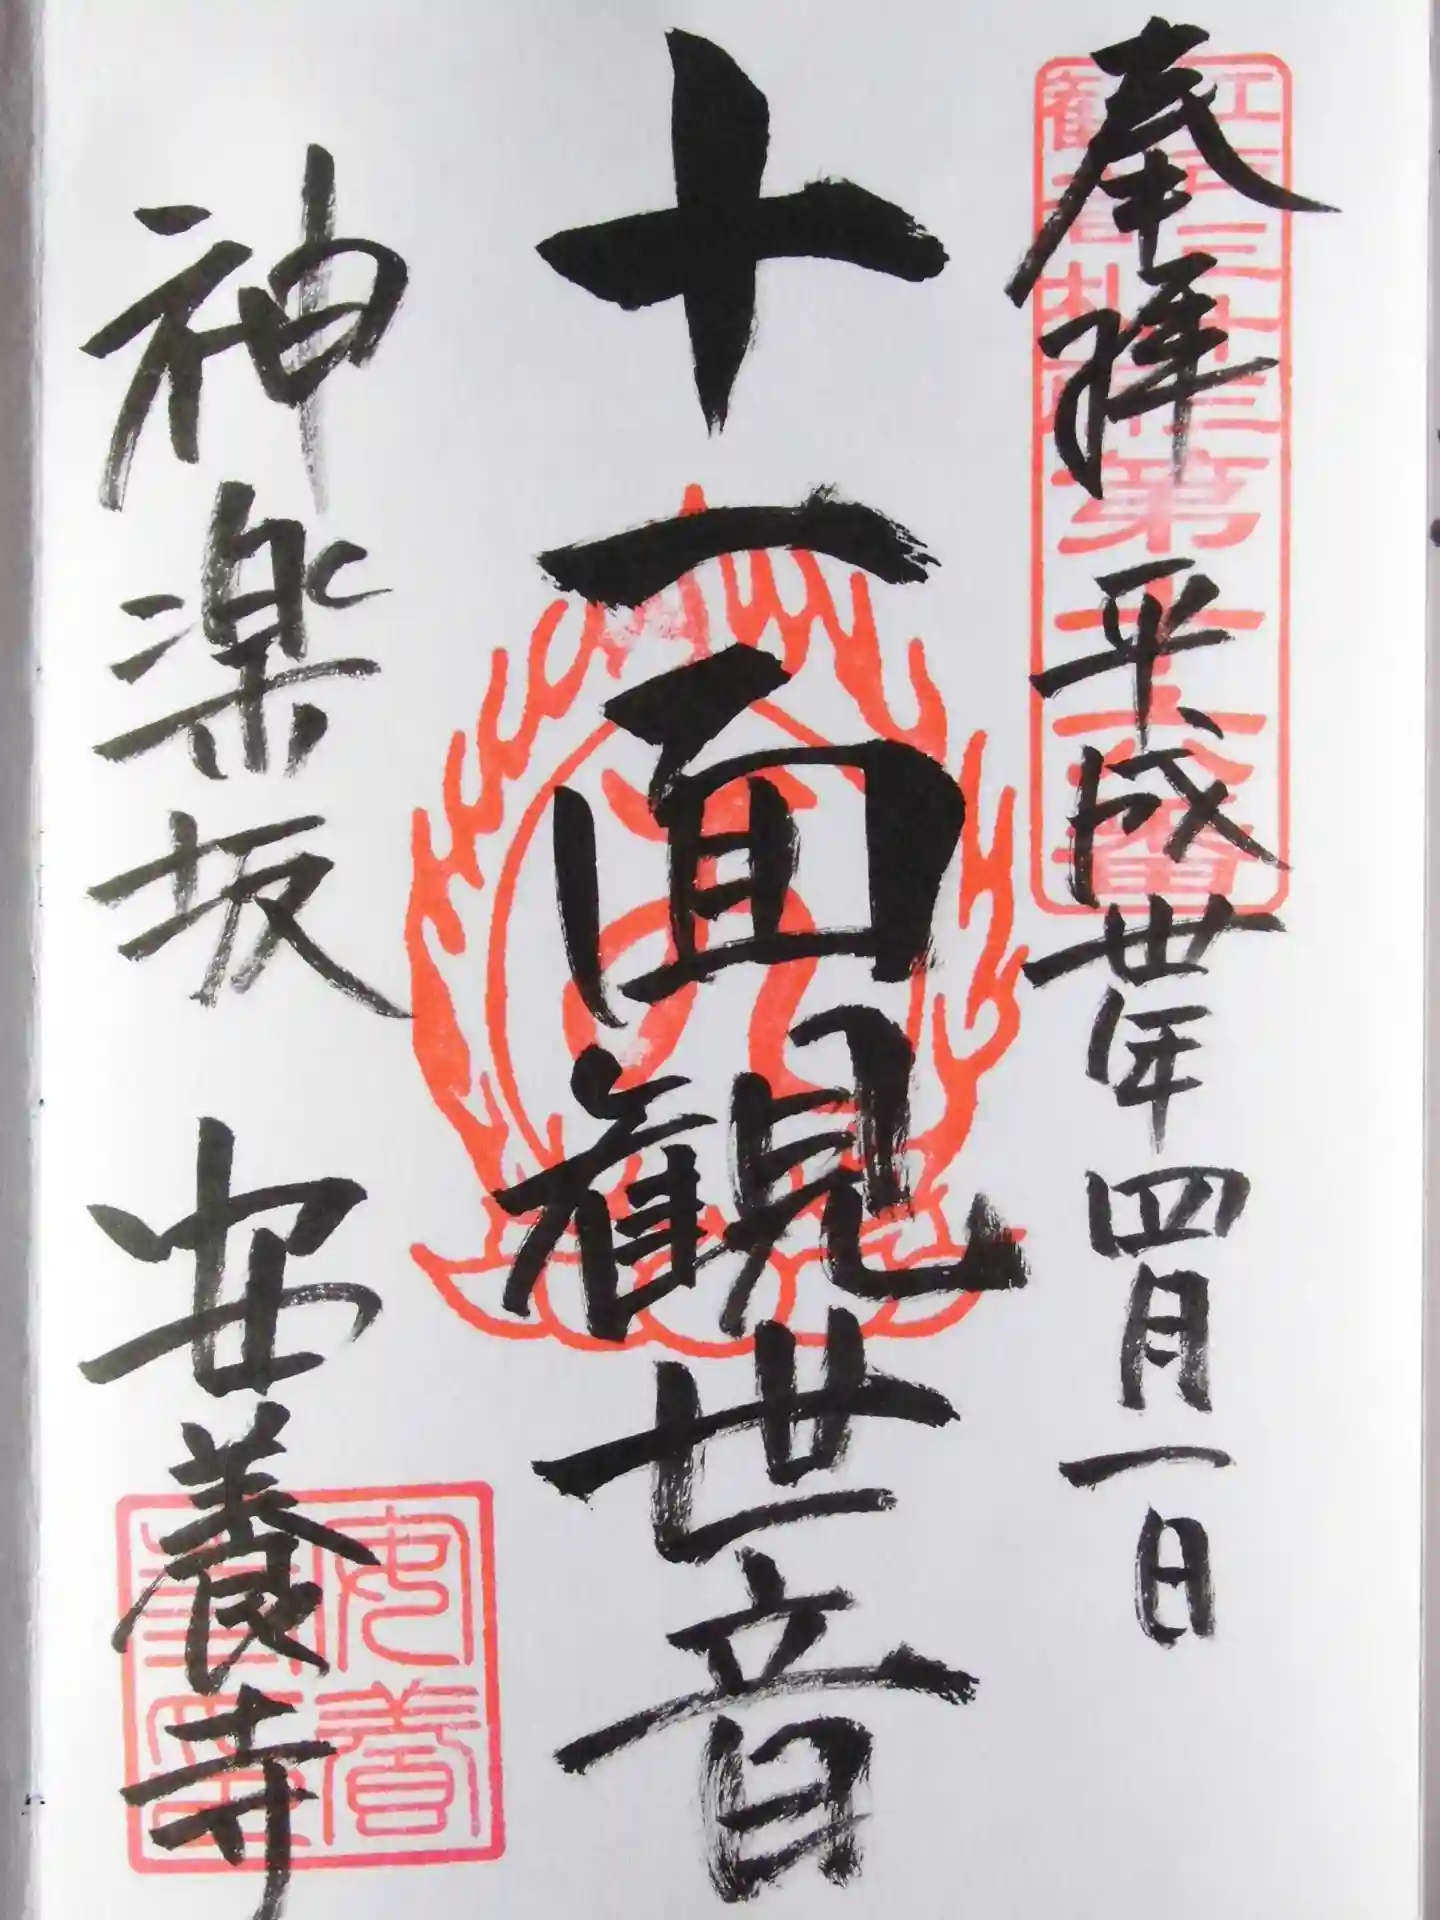 奉拝 平成卅年四月一日
江戸三十三
観音札所
第十六番
十一面観世音
神楽坂 安養寺
安養
寺印